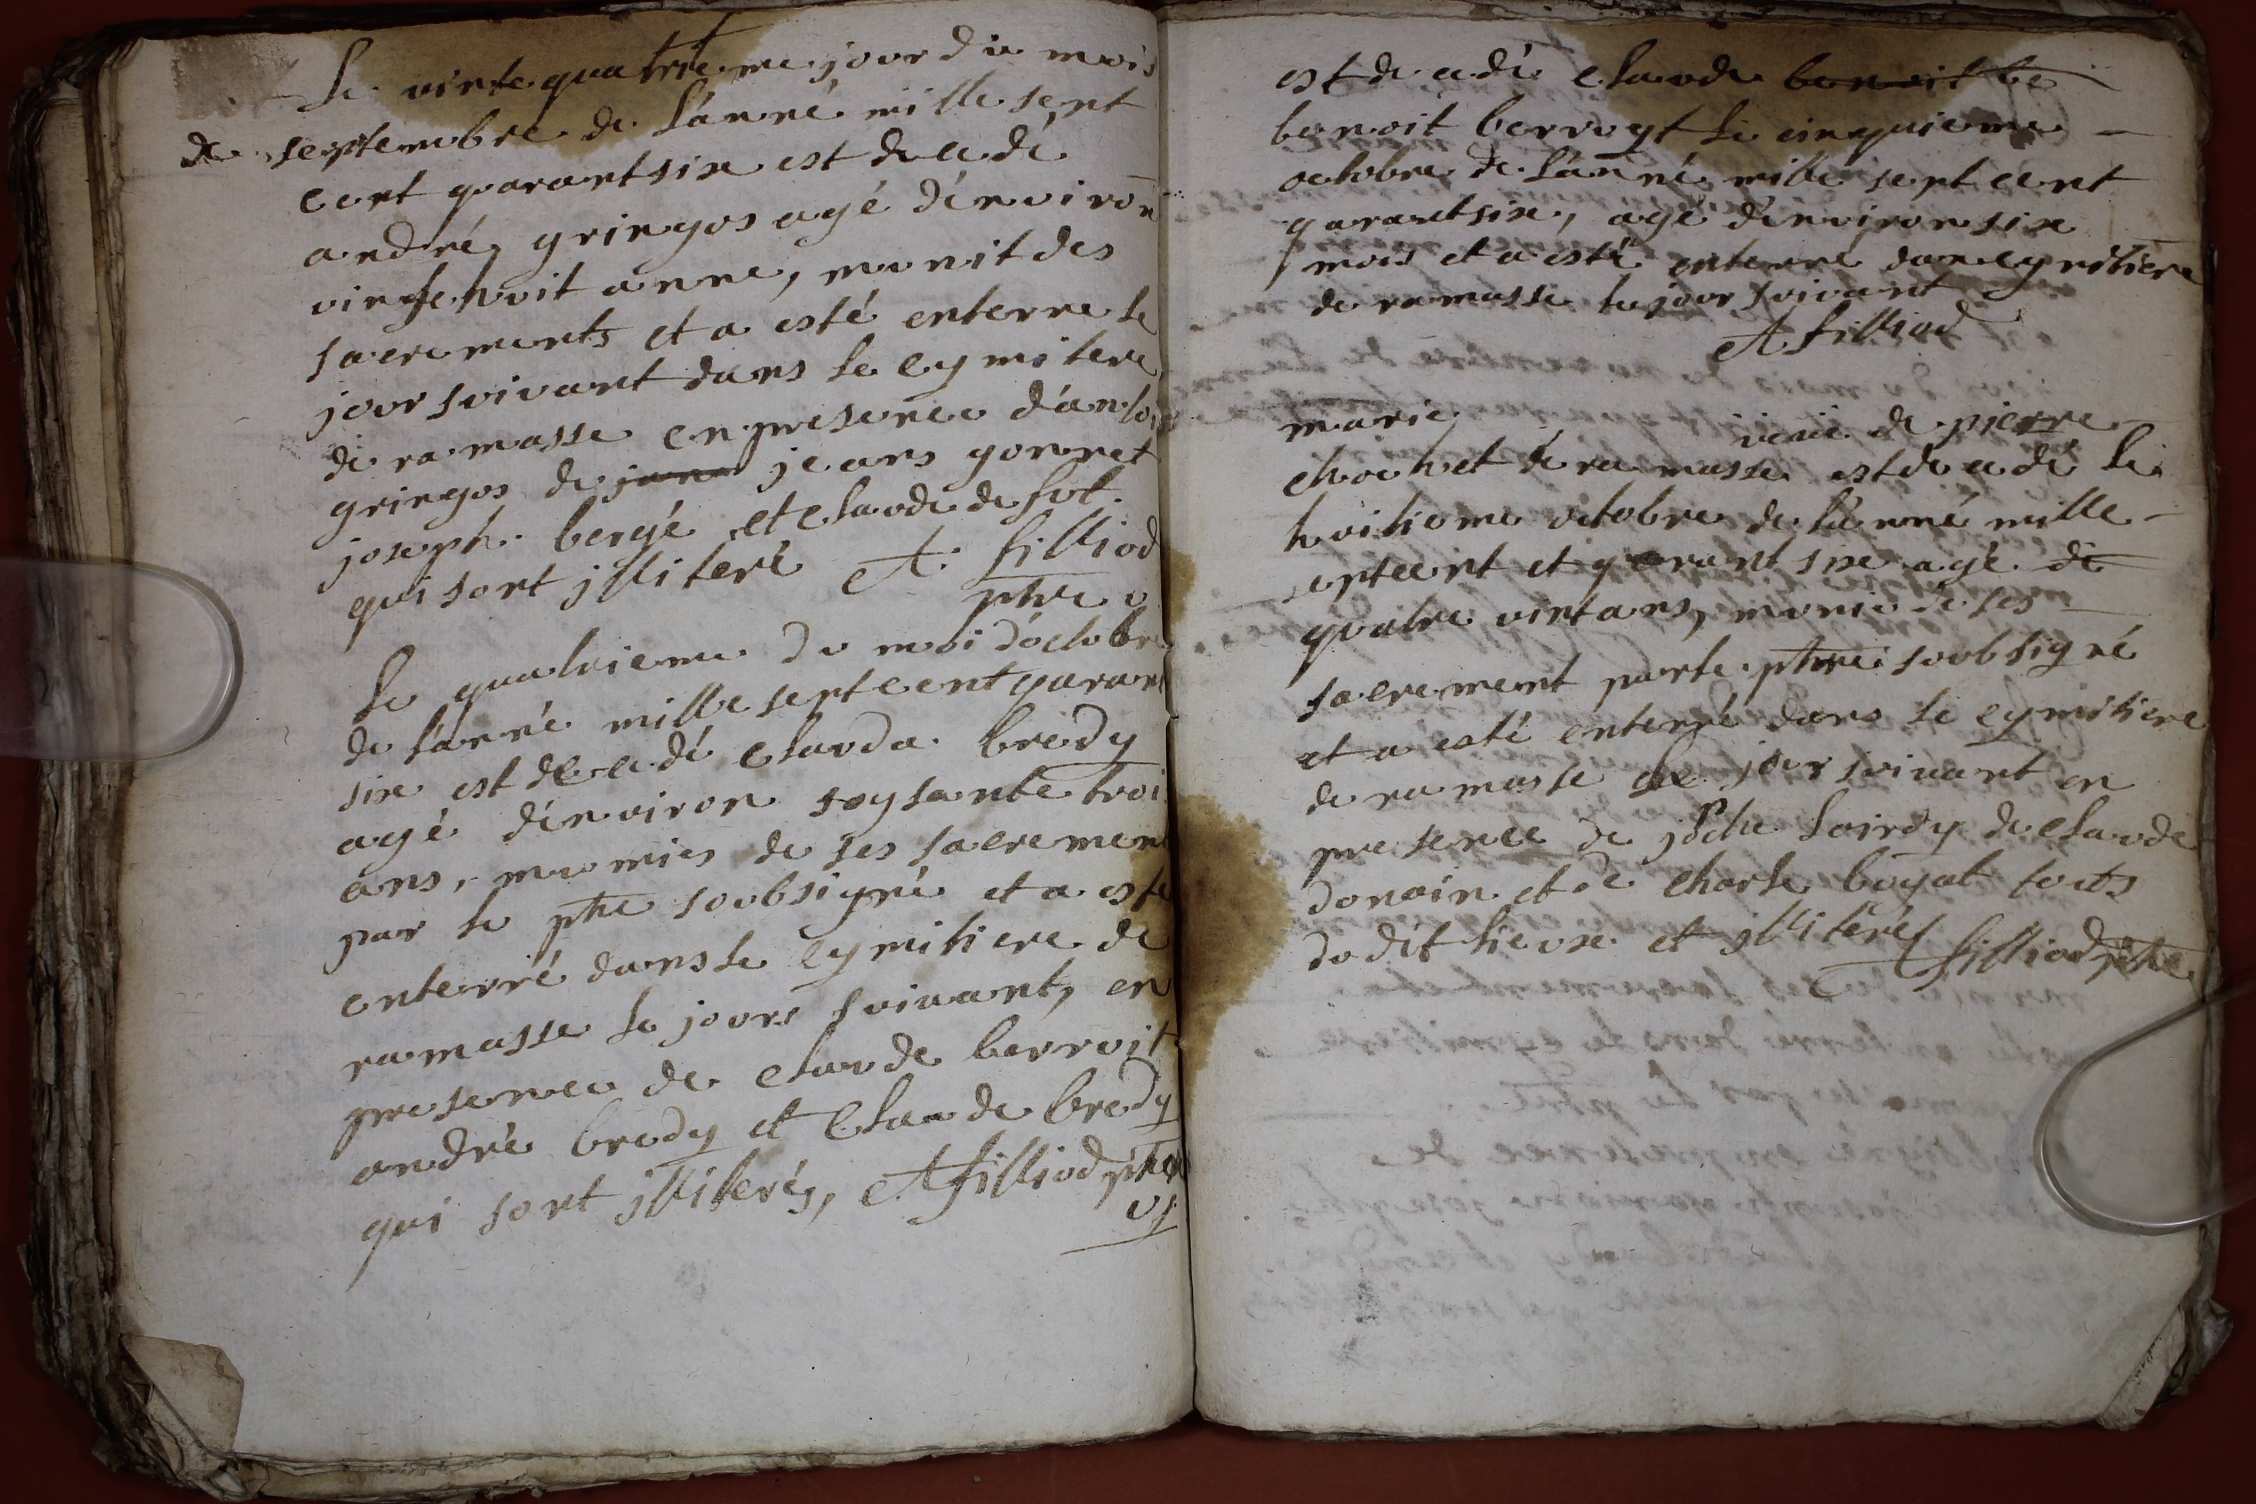 Le vinte quatrieme jour du mois
de septembre de l'anné mille sept
cent quarantsix est decedé
andré gringos agé d'environ
vingt huit anne, munit des
sacrements et a esté enterre le
jour suivant dans le cymitere
de ramasse en presence d'antoi
gringos de jeans gonnet
joseph bergé et claude de
qui sont jlliteré A. filliod
ptre v
Le quatrieme du moi d'octobre
de l'anné mille septcent quarant
six est decedé clauda bredy
agé d'environ soysante troi
ans, mumies de ses sacrement
par le ptre soubsigné et a esté
enterré dans le cymitiere de
ramasse le jours suivant, en
presence de claude berroit
andré bredy et Claude bredy
qui sont jlliterés, A filliod ptre
vs
est decedé claude benoit be
benoit berroyt le cinquieme
octobre de l'anné mille sept cent
quarantsix, agé d'environ six
mois et a esté enterré dan cymitiere
de ramasse le jour suivant
A filliod
marie veuve de pierre
chochet de ramasse est decedé le
huitieme octobre de l'anné mille
septcent et quarant six agé de
quatre vint ans, munie de ses
sacrement par le ptre soubsigné
et a esté enterré dans le cymitiere
de ramasse le jour suivant en
presence de jache loirdy de claude
donain et de charle boyat touts
du dit lieux et jlliterés A filliod ptre